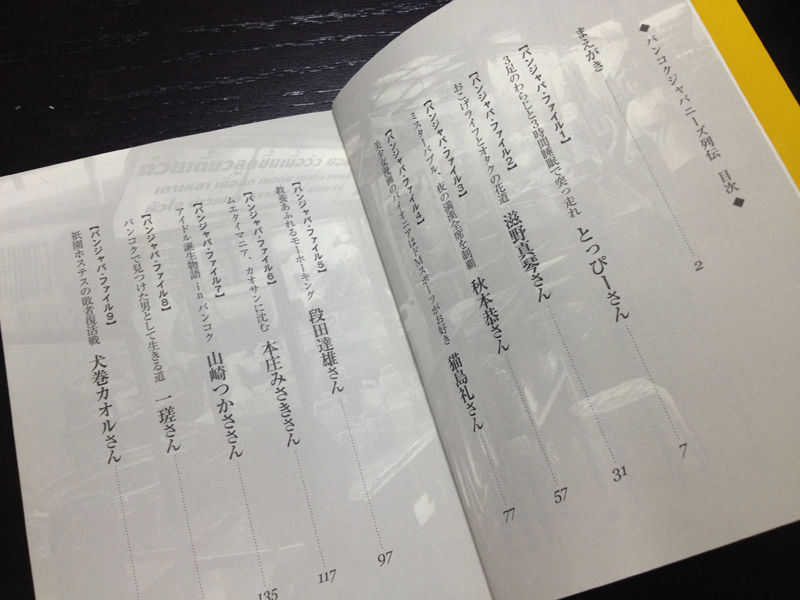 ◆バンコクジャパニーズ列伝 目次◆
まえがき 2
【バンジャパ・ファイル1】
3足のわらじと3時間睡眠で突っ走れ とっぴーさん 7
【バンジャパ・ファイル2】
おこげライフとオタクの花道 滋野真琴さん 31
【バンジャパ・ファイル3】
ミスターバブル、夜の満漢全席を制覇 秋本恭さん 57
【バンジャパ・ファイル4】
美少女漫画のパイオニアはドMスポーツがお好き 猫島礼さん 77
【バンジャパ・ファイル5】
教養あふれるモーホーキング 段田達雄さん 97
【バンジャパ・ファイル6】
ムエタイマニア、カオサンに沈む 本庄みさきさん 117
【バンジャパ・ファイル7】
アイドル誕生物語 in バンコク 山崎つかささん 135
【バンジャパ・ファイル8】
バンコクで見つけた男として生きる道 一瑳さん
【バンジャパ・ファイル9】
祇園ホステスの敗者復活戦 犬巻カオルさん